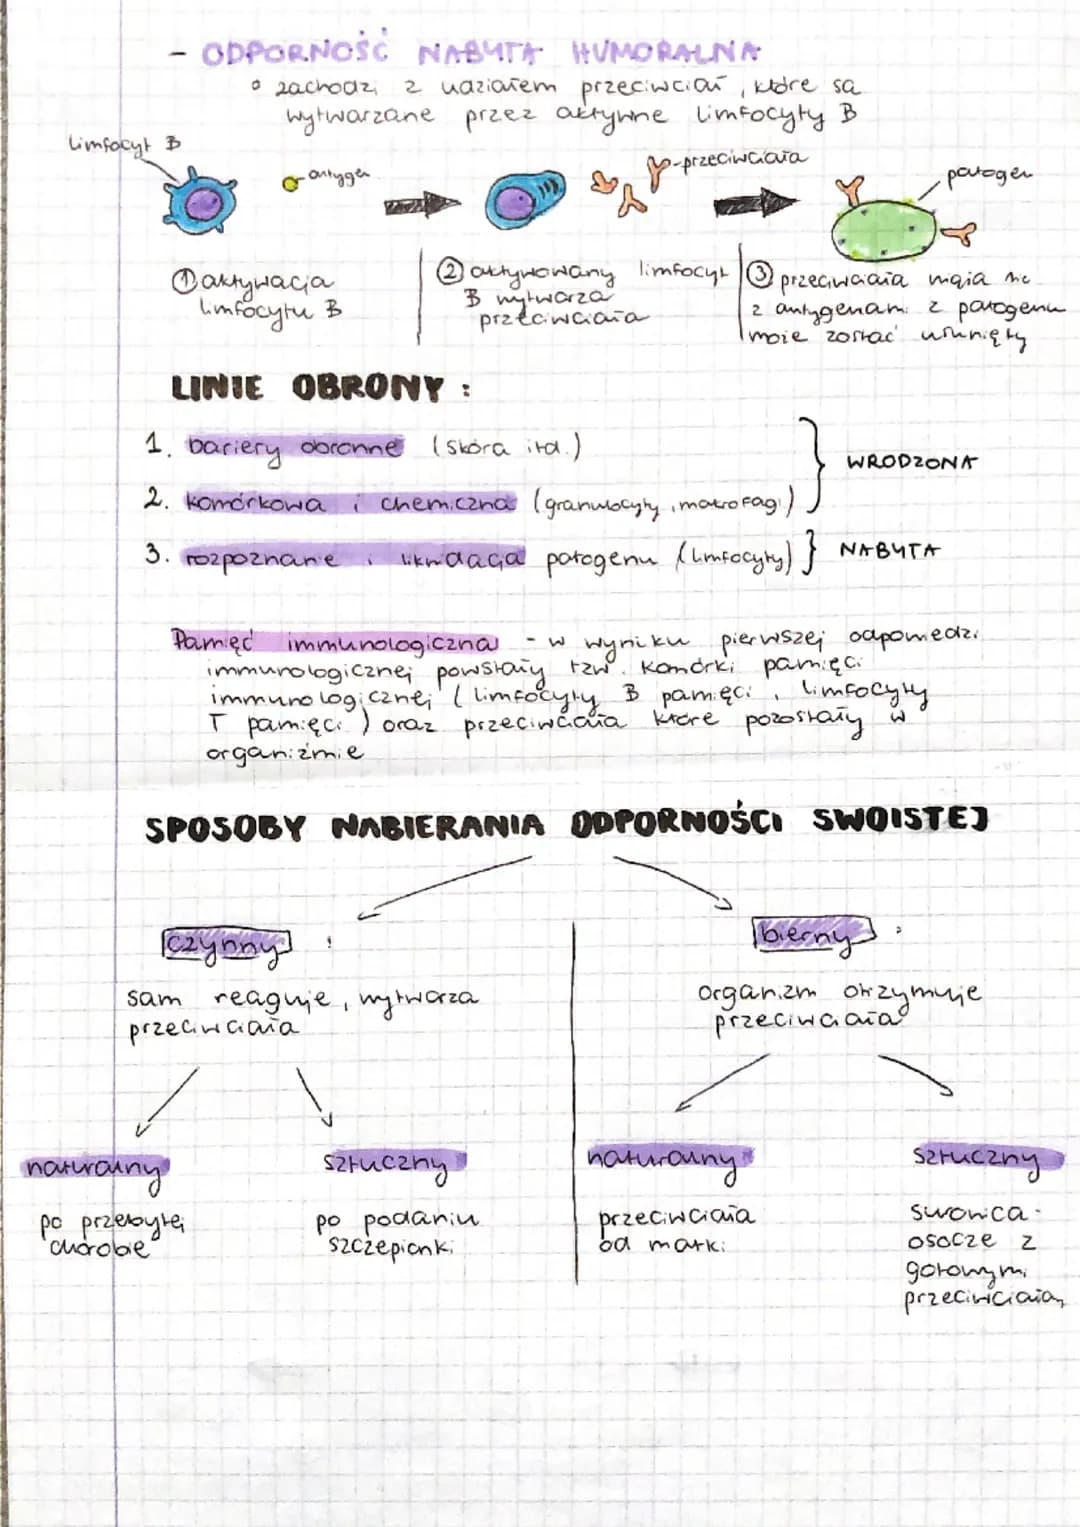 - ODPORNOŚĆ NABYTA HUMORALNA
zachodzi z udziałem przeciwciał, które są
wytwarzane przez aktywne limfocyty B
limfocyt B
antygen
-przeciwciała
patogen
① aktywacja
limfocytu B
② aktywowany limfocyt
B wytwarza
przeciwciała
③ przeciwciała wiążą się
z antygenami z patogenu
może zostać usunięty
LINIE OBRONY :
1. bariery obronne (skóra itd.)
2. komórkowa i chemiczna (granulocyty, makrofagi)
WRODZONA
3. rozpoznanie i likwidacja patogenu (limfocyty)
NABYTA
Pamięć immunologiczna - w wyniku pierwszej odpowiedzi
immunologicznej powstały tzw. komórki pamięci
immunologicznej (limfocyty B pamięci, limfocyty
T pamięci) oraz przeciwciała które pozostały w
organizmie
SPOSOBY NABIERANIA ODPORNOŚCI SWOISTEJ
czynny :
bierny :
sam reaguje, wytwarza
przeciwciała
organizm otrzymuje
przeciwciała
naturalny
sztuczny
naturalny
sztuczny
po przebytej
chorobie
po podaniu
szczepionki
przeciwciała
od matki
surowica -
osocze z
gotowymi
przeciwciałam